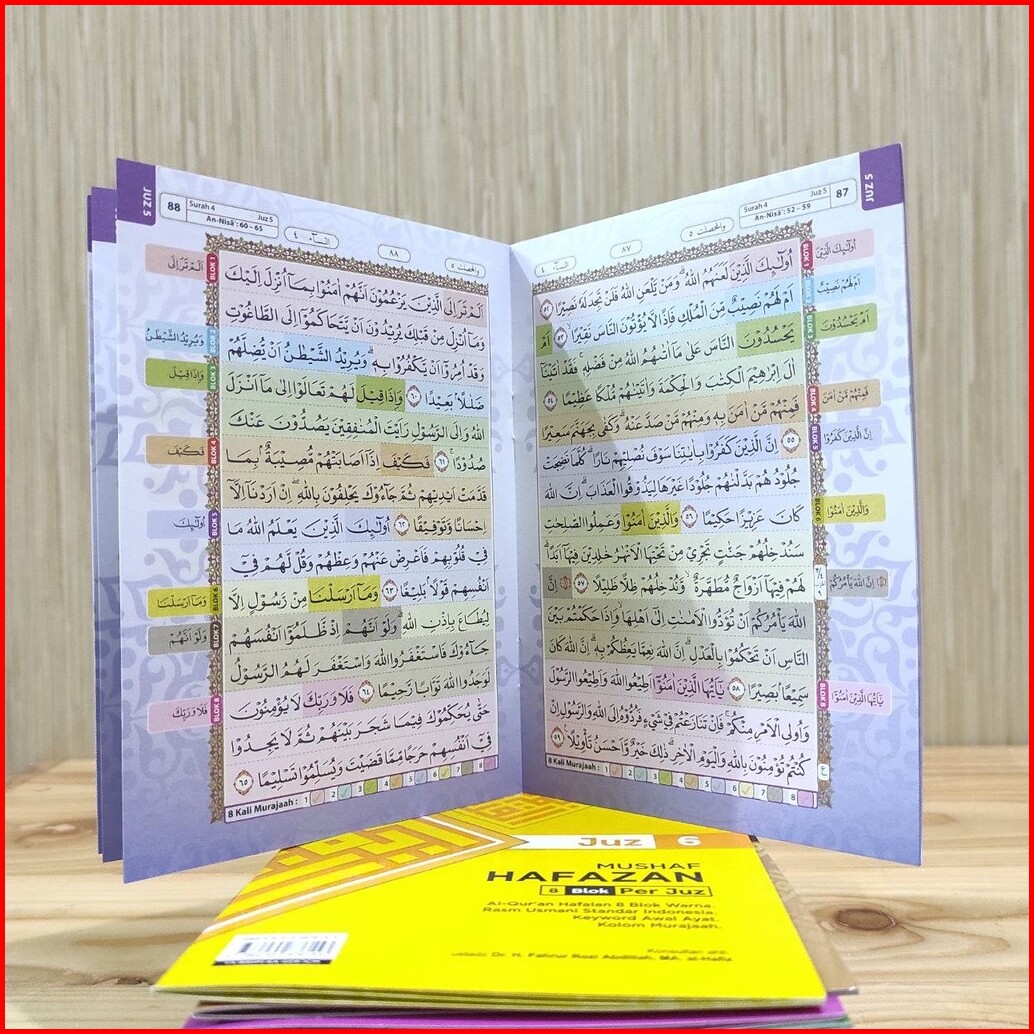 JUZ 5
Juz 5
87
Surah 4
An-Nisā': 52 - 59
والمحصنت ٥
٨٧
النساۤء ٤
اُولٰۤىِٕكَ الَّذِيْنَ لَعَنَهُمُ اللّٰهُ ۗوَمَنْ يَّلْعَنِ اللّٰهُ فَلَنْ تَجِدَ لَهٗ نَصِيْرًا ۝٥٢
اَمْ لَهُمْ نَصِيْبٌ مِّنَ الْمُلْكِ فَاِذًا لَّا يُؤْتُوْنَ النَّاسَ نَقِيْرًا ۝٥٣ اَمْ
يَحْسُدُوْنَ النَّاسَ عَلٰى مَآ اٰتٰىهُمُ اللّٰهُ مِنْ فَضْلِهٖۚ فَقَدْ اٰتَيْنَآ
اٰلَ اِبْرٰهِيْمَ الْكِتٰبَ وَالْحِكْمَةَ وَاٰتَيْنٰهُمْ مُّلْكًا عَظِيْمًا ۝٥٤
فَمِنْهُمْ مَّنْ اٰمَنَ بِهٖ وَمِنْهُمْ مَّنْ صَدَّ عَنْهُ ۗوَكَفٰى بِجَهَنَّمَ سَعِيْرًا
۝٥٥ اِنَّ الَّذِيْنَ كَفَرُوْا بِاٰيٰتِنَا سَوْفَ نُصْلِيْهِمْ نَارًاۗ كُلَّمَا نَضِجَتْ
جُلُوْدُهُمْ بَدَّلْنٰهُمْ جُلُوْدًا غَيْرَهَا لِيَذُوْقُوا الْعَذَابَۗ اِنَّ اللّٰهَ
كَانَ عَزِيْزًا حَكِيْمًا ۝٥٦ وَالَّذِيْنَ اٰمَنُوْا وَعَمِلُوا الصّٰلِحٰتِ
سَنُدْخِلُهُمْ جَنّٰتٍ تَجْرِيْ مِنْ تَحْتِهَا الْاَنْهٰرُ خٰلِدِيْنَ فِيْهَآ اَبَدًاۗ
لَهُمْ فِيْهَآ اَزْوَاجٌ مُّطَهَّرَةٌ ۙ وَّنُدْخِلُهُمْ ظِلًّا ظَلِيْلًا ۝٥٧ ۞ اِنَّ
اللّٰهَ يَأْمُرُكُمْ اَنْ تُؤَدُّوا الْاَمٰنٰتِ اِلٰٓى اَهْلِهَاۙ وَاِذَا حَكَمْتُمْ بَيْنَ
النَّاسِ اَنْ تَحْكُمُوْا بِالْعَدْلِ ۗ اِنَّ اللّٰهَ نِعِمَّا يَعِظُكُمْ بِهٖ ۗ اِنَّ اللّٰهَ كَانَ
سَمِيْعًاۢ بَصِيْرًا ۝٥٨ يٰٓاَيُّهَا الَّذِيْنَ اٰمَنُوْٓا اَطِيْعُوا اللّٰهَ وَاَطِيْعُوا الرَّسُوْلَ
وَاُولِى الْاَمْرِ مِنْكُمْۚ فَاِنْ تَنَازَعْتُمْ فِيْ شَيْءٍ فَرُدُّوْهُ اِلَى اللّٰهِ وَالرَّسُوْلِ اِنْ
كُنْتُمْ تُؤْمِنُوْنَ بِاللّٰهِ وَالْيَوْمِ الْاٰخِرِۗ ذٰلِكَ خَيْرٌ وَّاَحْسَنُ تَأْوِيْلًا ۝٥٩
8 Kali Murajaah : 1 2 3 4 5 6 7 8
BLOK 1 اُولٰۤىِٕكَ الَّذِيْنَ
اَمْ لَهُمْ نَصِيْبٌ
اَمْ يَحْسُدُوْنَ
BLOK 4 فَمِنْهُمْ مَّنْ اٰمَنَ
BLOK 5 اِنَّ الَّذِيْنَ كَفَرُوْا
BLOK 6 وَالَّذِيْنَ اٰمَنُوْا
۞ اِنَّ اللّٰهَ يَأْمُرُكُمْ
BLOK 8 يٰٓاَيُّهَا الَّذِيْنَ اٰمَنُوْٓا
JUZ 5
88
Surah 4
Juz 5
An-Nisā': 60 - 65
والمحصنت ٥
٨٨
النساۤء ٤
اَلَمْ تَرَ اِلَى الَّذِيْنَ يَزْعُمُوْنَ اَنَّهُمْ اٰمَنُوْا بِمَآ اُنْزِلَ اِلَيْكَ
وَمَآ اُنْزِلَ مِنْ قَبْلِكَ يُرِيْدُوْنَ اَنْ يَّتَحَاكَمُوْٓا اِلَى الطَّاغُوْتِ
وَقَدْ اُمِرُوْٓا اَنْ يَّكْفُرُوْا بِهٖۗ وَيُرِيْدُ الشَّيْطٰنُ اَنْ يُّضِلَّهُمْ
ضَلٰلًاۢ بَعِيْدًا ۝٦٠ وَاِذَا قِيْلَ لَهُمْ تَعَالَوْا اِلٰى مَآ اَنْزَلَ
اللّٰهُ وَاِلَى الرَّسُوْلِ رَاَيْتَ الْمُنٰفِقِيْنَ يَصُدُّوْنَ عَنْكَ
صُدُوْدًاۚ ۝٦١ فَكَيْفَ اِذَآ اَصَابَتْهُمْ مُّصِيْبَةٌۢ بِمَا
قَدَّمَتْ اَيْدِيْهِمْ ثُمَّ جَاۤءُوْكَ يَحْلِفُوْنَ بِاللّٰهِ ۖاِنْ اَرَدْنَآ اِلَّآ
اِحْسَانًا وَّتَوْفِيْقًا ۝٦٢ اُولٰۤىِٕكَ الَّذِيْنَ يَعْلَمُ اللّٰهُ مَا
فِيْ قُلُوْبِهِمْ فَاَعْرِضْ عَنْهُمْ وَعِظْهُمْ وَقُلْ لَّهُمْ فِيْٓ
اَنْفُسِهِمْ قَوْلًاۢ بَلِيْغًا ۝٦٣ وَمَآ اَرْسَلْنَا مِنْ رَّسُوْلٍ اِلَّا
لِيُطَاعَ بِاِذْنِ اللّٰهِ ۗوَلَوْ اَنَّهُمْ اِذْ ظَّلَمُوْٓا اَنْفُسَهُمْ
جَاۤءُوْكَ فَاسْتَغْفَرُوا اللّٰهَ وَاسْتَغْفَرَ لَهُمُ الرَّسُوْلُ
لَوَجَدُوا اللّٰهَ تَوَّابًا رَّحِيْمًا ۝٦٤ فَلَا وَرَبِّكَ لَا يُؤْمِنُوْنَ
حَتّٰى يُحَكِّمُوْكَ فِيْمَا شَجَرَ بَيْنَهُمْ ثُمَّ لَا يَجِدُوْا
فِيْٓ اَنْفُسِهِمْ حَرَجًا مِّمَّا قَضَيْتَ وَيُسَلِّمُوْا تَسْلِيْمًا ۝٦٥
8 Kali Murajaah : 1 2 3 4 5 6 7 8
BLOK 1 اَلَمْ تَرَ اِلَى
BLOK 2 وَيُرِيْدُ الشَّيْطٰنُ
BLOK 3 وَاِذَا قِيْلَ
BLOK 4 فَكَيْفَ
BLOK 5 اُولٰۤىِٕكَ
BLOK 6 وَمَآ اَرْسَلْنَا
BLOK 7 وَلَوْ اَنَّهُمْ
BLOK 8 فَلَا وَرَبِّكَ
Juz 6
MUSHAF
HAFAZAN
8 Blok Per Juz
Al-Qur'an Hafalan 8 Blok Warna.
Rasm Usmani Standar Indonesia.
Keyword Awal Ayat.
Kolom Murajaah.
Konsultan ahli:
ustadz Dr. H. Fahrur Rozi Abdillah, MA. al-Hafiz